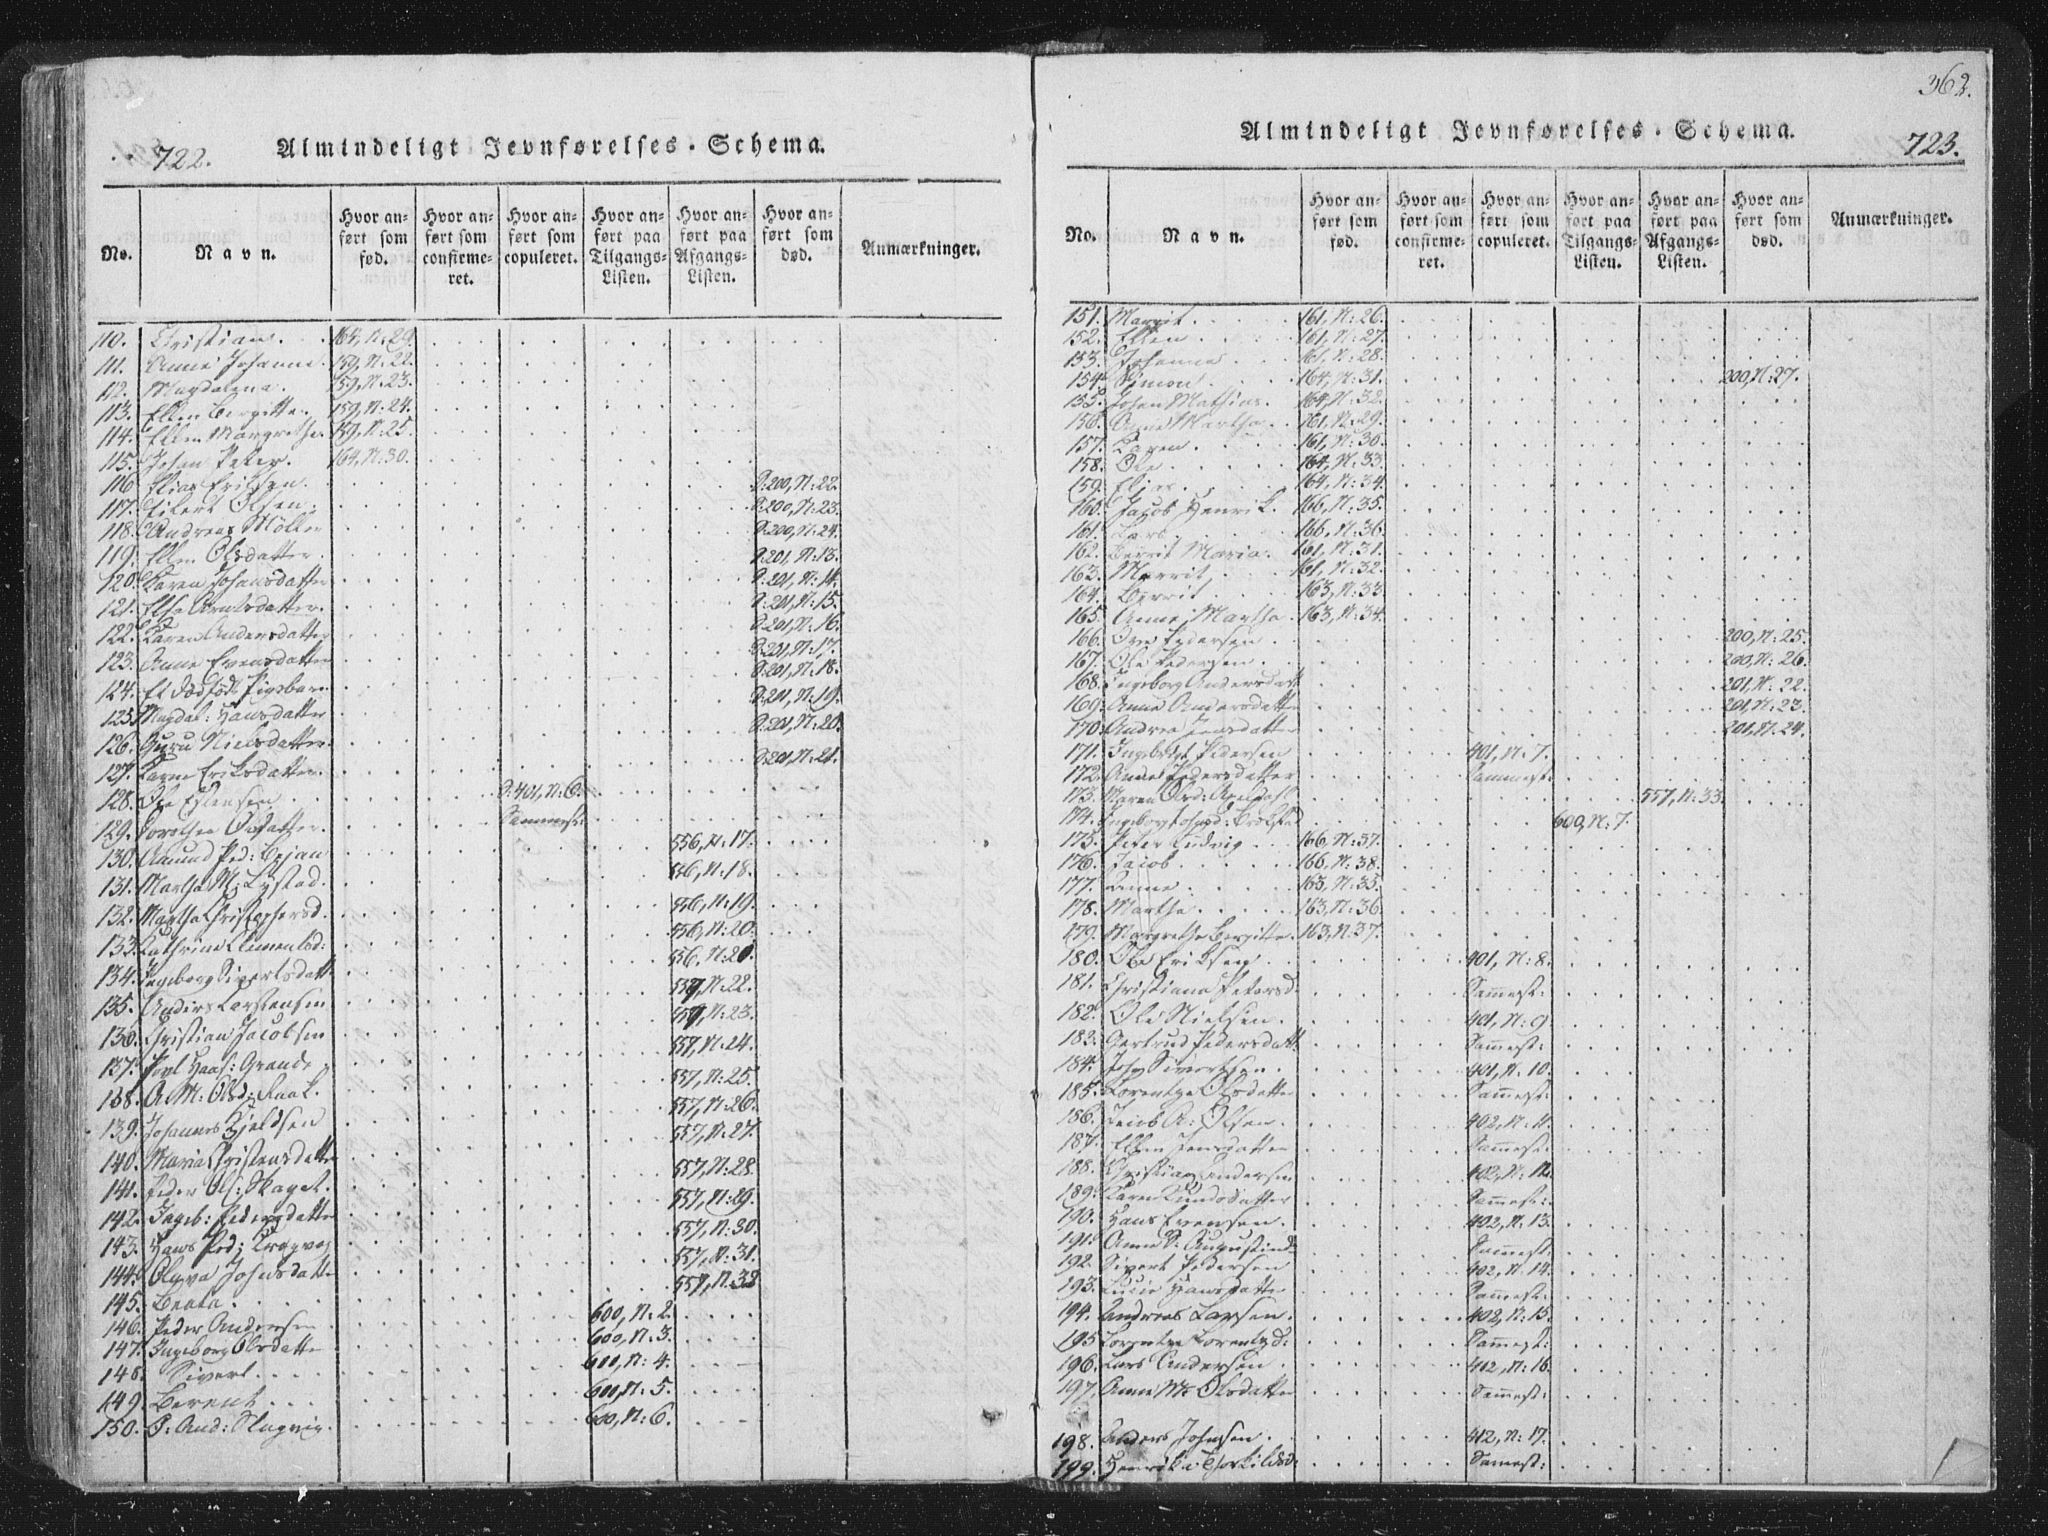 722. Almindeligt Jevnførelses-Schema.
No. Navn. Hvor anført som fød. Hvor anført som confirmeret. Hvor anført som copuleret. Hvor anført paa Tilgangs-Listen. Hvor anført paa Afgangs-Listen. Hvor anført som død. Anmærkninger.
110. Christian. 164, N:29.
111. Anne Johanne 159, N:22.
112. Magdalena. 159, N:23.
113. Ellen Bergitte. 159, N:24.
114. Ellen Margrethe 159, N:25.
115. Johan Peter. 164, N:30.
116. Elias Eriksen. P:200, N:22.
117. Eilert Olsen. P:200, N:23.
118. Andreas Möller P:200, N:24.
119. Ellen Olsdatter. P:201, N:13.
120. Karen Johansdatter P:201, N:14.
121. Else Arntsdatter. P:201, N:15.
122. Karen Andersdatter P:201, N:16.
123. Anne Evensdatter P:201, N:17.
124. Et dødfødt Pigebarn P:201, N:18.
125. Magdal: Hansdatter P:201, N:19.
126. Guru Nielsdatter. P:201, N:20.
127. Karen Eriksdatter. P:201, N:21.
128. Ole Estensen P:401, N:6.
129. Dorothea Olsdatter. Sammest:
130. Amund Ped: Bejan 556, N:17.
131. Martha M: Lystad. 556, N:18.
132. Martha Christophersd. 556, N:19.
133. Cathrine Clemetsd: 556, N:20.
134. Ingeborg Sivertsdatt 556, N:21.
135. Anders Torstensen 557, N:22.
136. Christian Jacobsen 557, N:23.
137. Povl Haaf: Grande 557, N:24.
138. A. M: Olsd: Raak. 557, N:25.
139. Johannes Kjeldsen 557, N:26.
140. Maria Christensdatter 557, N:27.
141. Peder Ols: Skaget. 557, N:28.
142. Ingeb: Pedersdatter 557, N:29.
143. Hans Ped: 557, N:30.
144. Olava Johnsdatter 557, N:31.
145. Beata. 557, N:32
146. Peder Andersen 600, N:2.
147. Ingeborg Olsdatter 600, N:3.
148. Sivert. 600, N:4.
149. Berent 600, N:5.
150. O: And: Slagvig. 600, N:6.
362.
Almindeligt Jevnførelses-Schema. 723.
No. Navn. Hvor anført som fød. Hvor anført som confirmeret. Hvor anført som copuleret. Hvor anført paa Tilgangs-Listen. Hvor anført paa Afgangs-Listen. Hvor anført som død. Anmærkninger.
151. Marrit. 161, N:26.
152. Ellen 161, N:27.
153. Johanna 161, N:28.
154. Simon. 164, N:31. 200, N:27.
155. Johan Mathias. 164, N:32.
156. Anne Martha. 161, N:29.
157. Karen. 161, N:30.
158. Ole 164, N:33.
159. Elias 164, N:34.
160. Jacob Henrik. 166, N:35.
161. Lars. 166, N:36.
162. Berrit Maria. 161, N:31.
163. Marrit, 161, N:32.
164. Berrit. 163, N:33.
165. Anne Martha 163, N:34.
166. Ove Pedersen 200, N:25.
167. Ole Pedersen 200, N:26.
168. Ingeborg Andersdatt 201, N:22.
169. Anne Andersdatter 201, N:23.
170. Andrea Jensdatter 201, N:24.
171. Ingebrigt Pedersen 401, N:7.
172. Anne Pedersdatter Sammest:
173. Maren Olsd: 557, N:33.
174. Ingeborg Johnsd: 600, N:7.
175. Peter Ludvig 166, N:37.
176. Jacob. 166, N:38.
177. Anne 163, N:35.
178. Marthe 163, N:36.
179. Margrethe Bergitte. 163, N:37.
180. Ole Eriksen 401, N:8.
181. Christiana Petersd. Samest:
182. Ole Nielsen. 401, N:9.
183. Gertrud Pedersdatt: Samest:
184. John Sivertsen. 401, N:10.
185. Lorentze Olsdatter Samest:
186. Jens A: Olsen. 402, N:11.
187. Ellen Jensdatter Samest:
188. Christian Andersen 402, N:12.
189. Karen Knudsdatter Samest:
190. Hans Evensen. 402, N:13.
191. Anne S: Augustind: Samest:
192. Sivert Pedersen 402, N:14.
193. Lucie Hansdatter Samest:
194. Andreas Larsen. 402, N:15.
195 Lorentze Lorentzd: Samest:
196. Lars Andersen 412, N:16.
197. Anne M: Olsdatter Samest:
198. Anders Johnsen 412, N:17.
199. Henrik: Torkildsd: Samest: